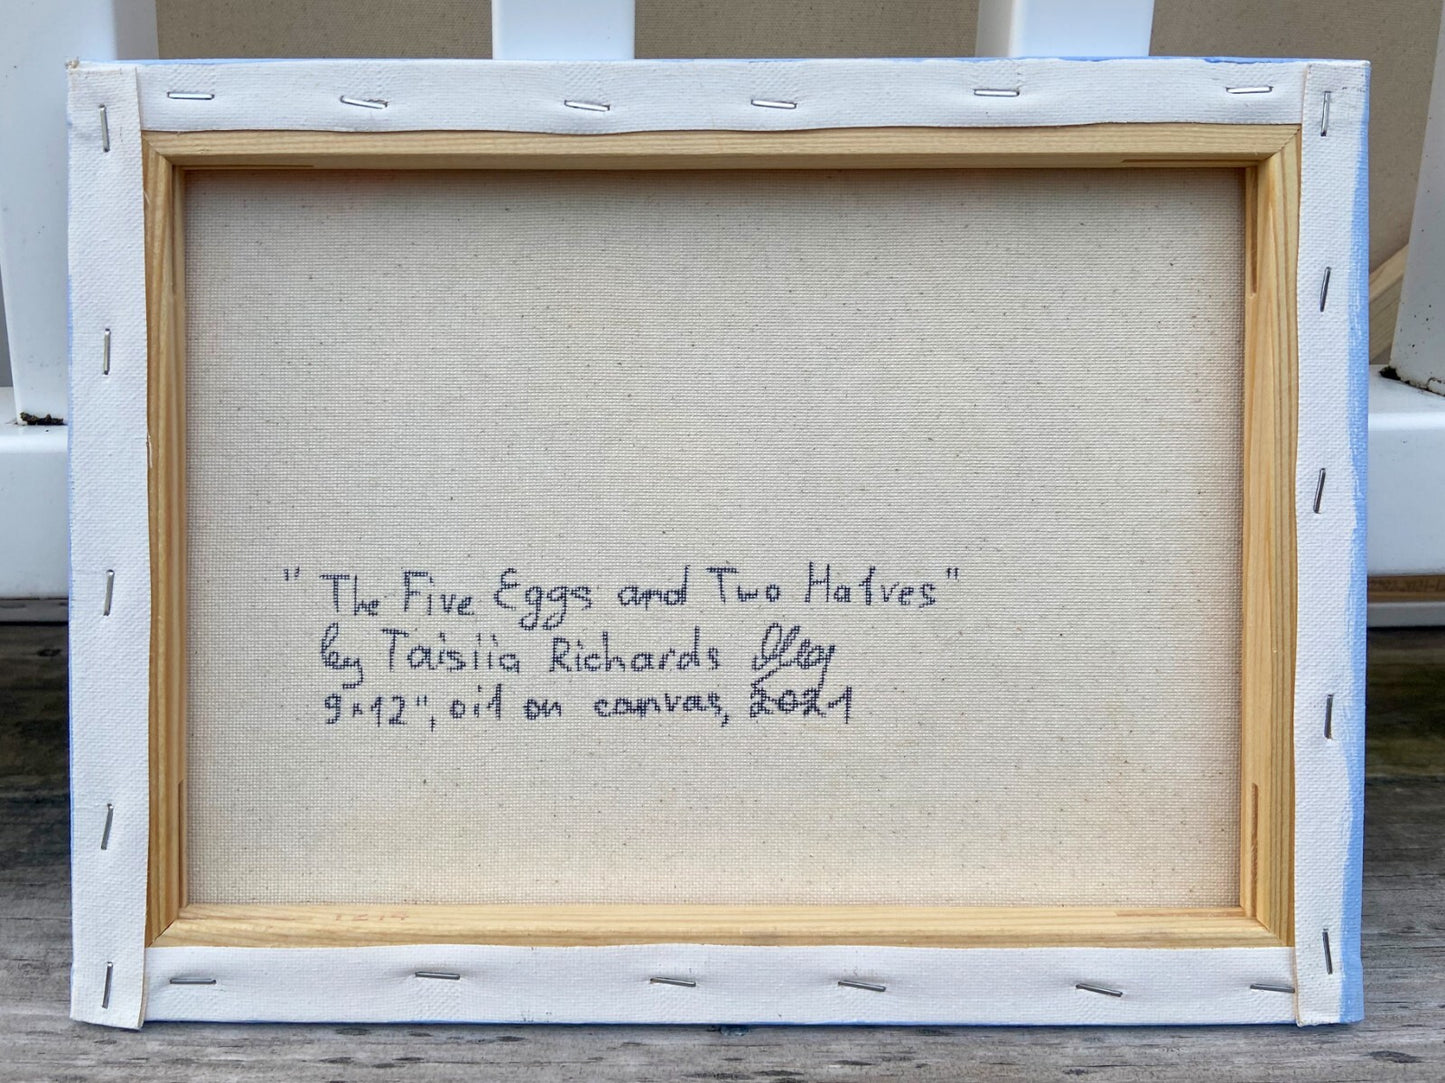 "The Five Eggs and Two Halves"
by Taisiia Richards
9×12", oil on canvas, 2021